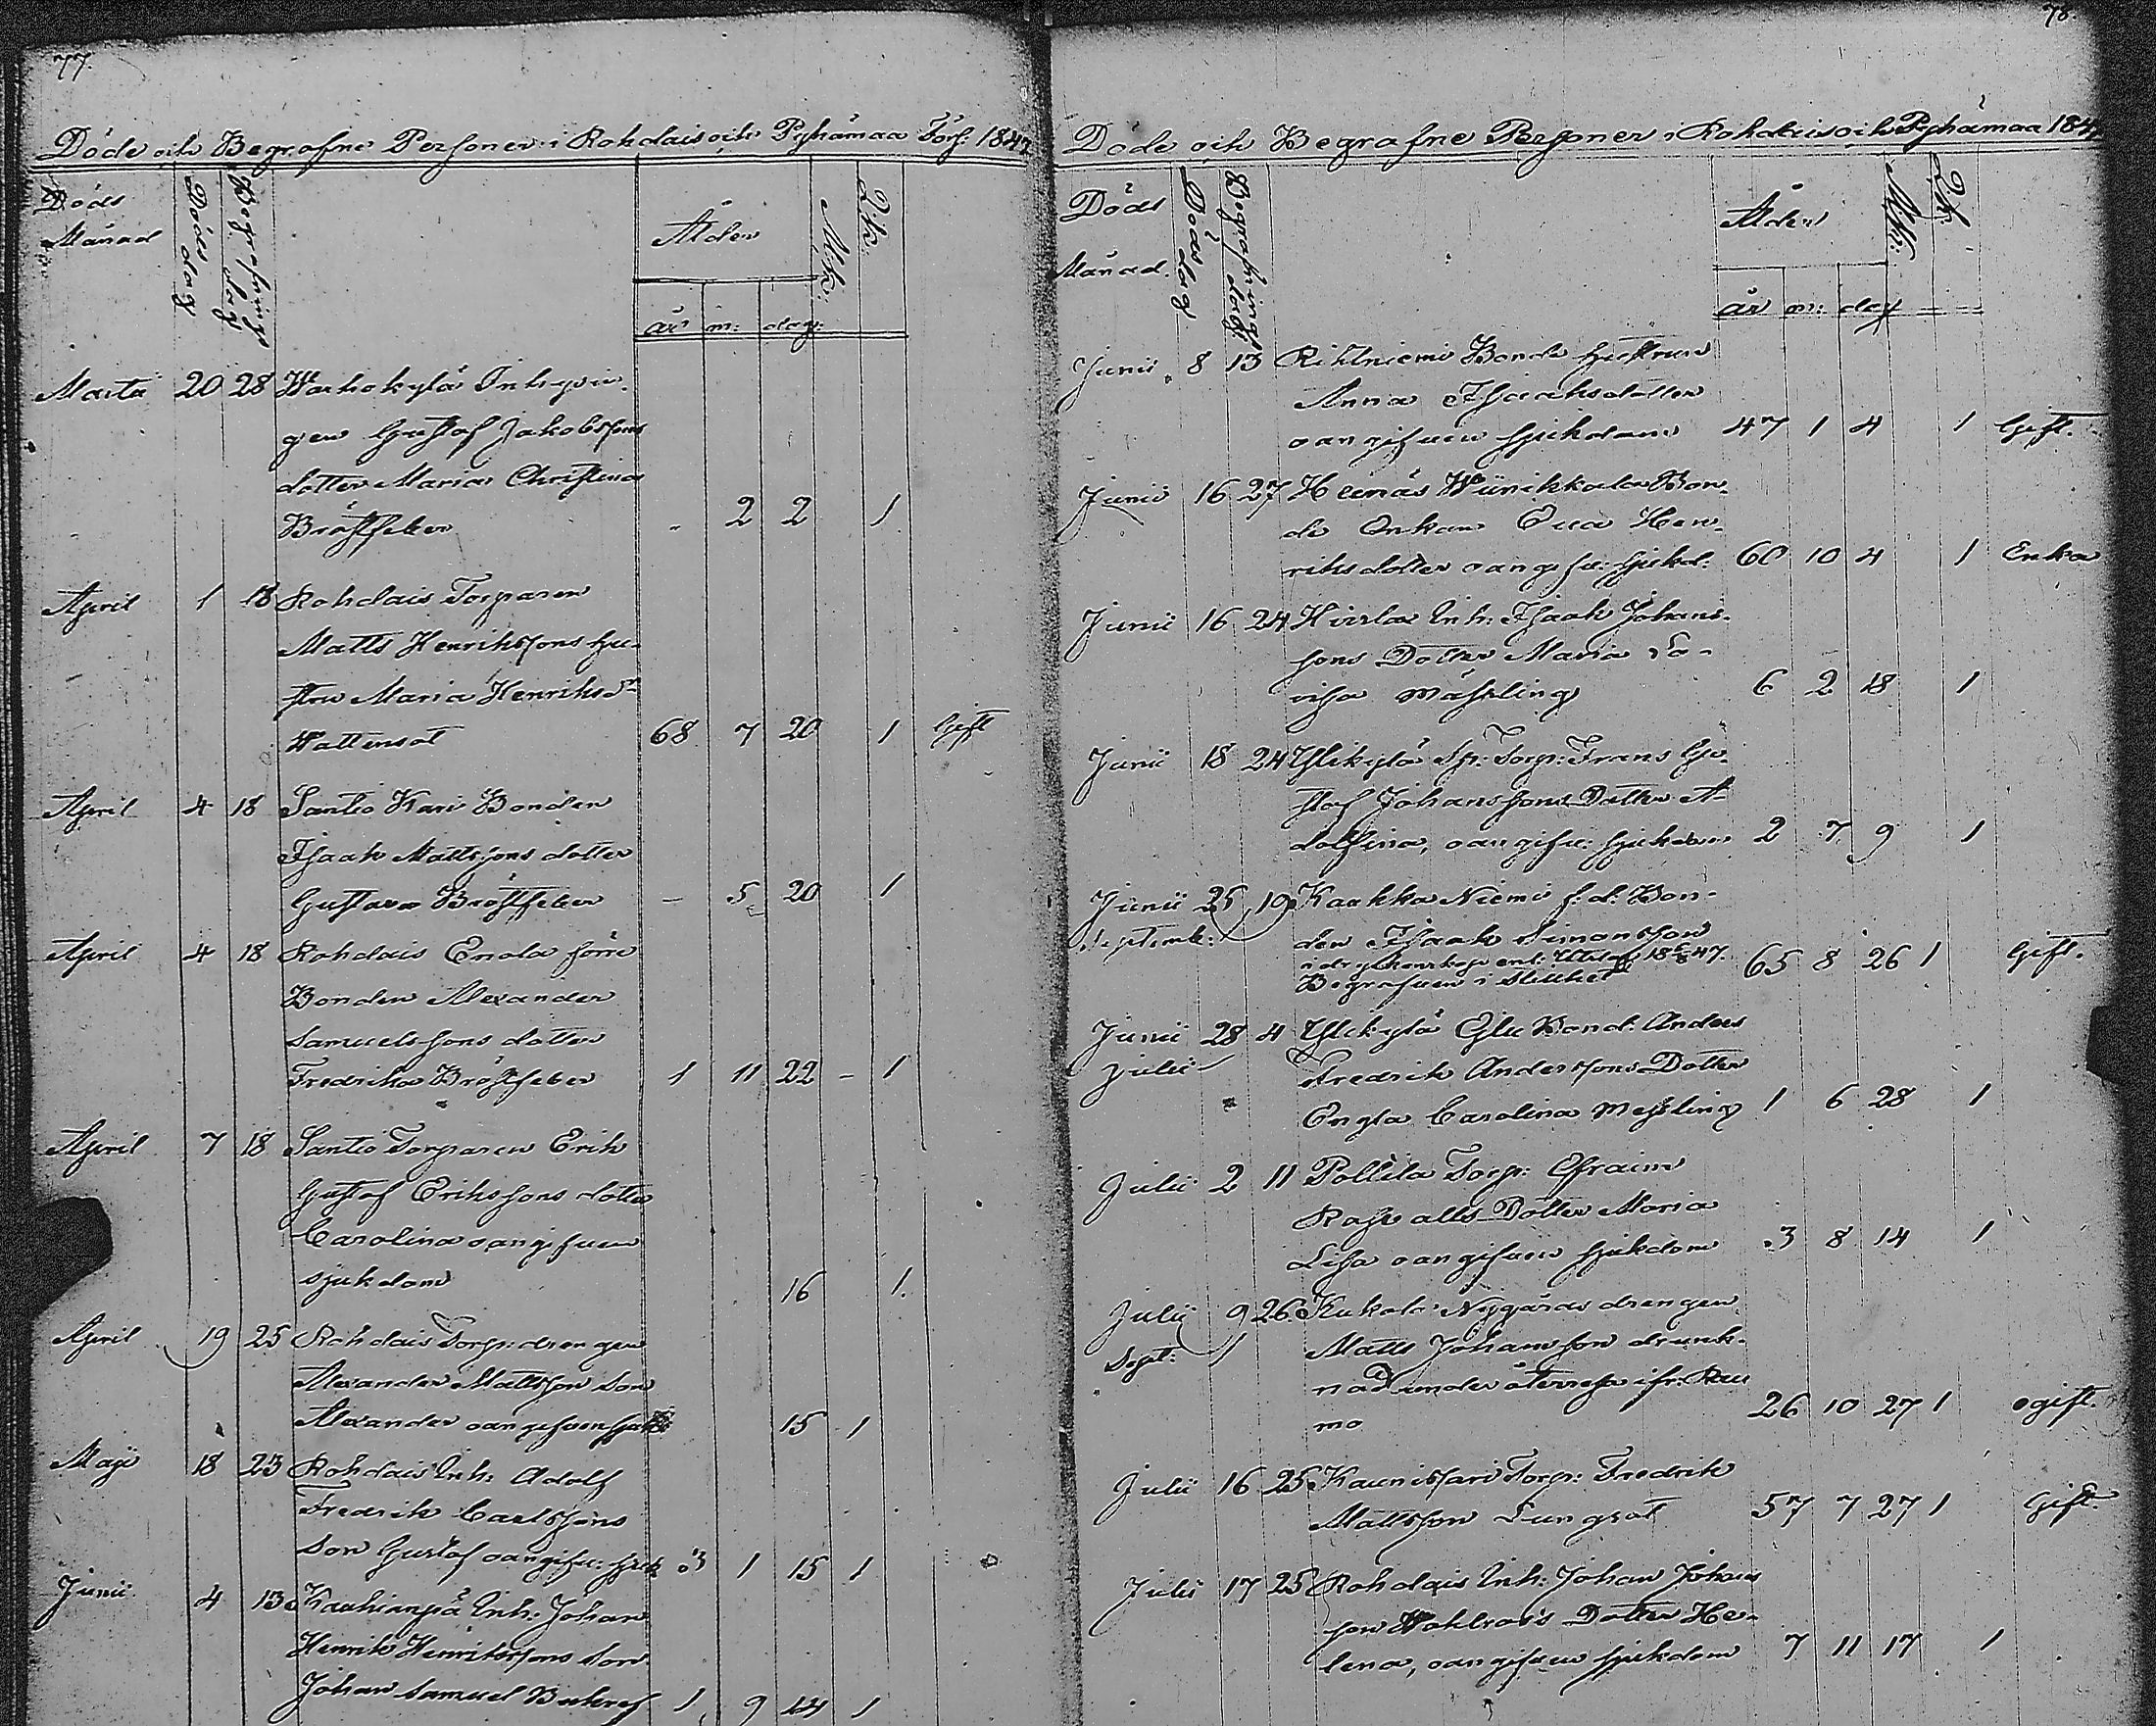 77.
Döde och Begrafne Personer i Rohdais och Pyhämaa Förs: 1847
Döds Månad
Döds dag
Begrafnings dag
Ålder
år m: dag:
M:k:
Q:k:
Martii 20 28 Warhokylä Inhysin-
gen Gustaf Jakobssons
dotter Maria Christina
Bröstfeber " 2 2 1
April 1 18 Rohdais Torparen
Matts Henrikssons hu-
stru Maria Henriksdr
Wattensot 68 7 20 1 Gift
April 4 18 Santio Kari Bonden
Isaak Mattssons dotter
Gustava Bröstfeber - 5 20 1
April 4 18 Rohdais Enola förre
Bonden Alexander
Samuelssons dotter
Fredrika Bröstfeber 1 11 22 - 1
April 7 18 Santio Torparen Erik
Gustaf Erikssons dotter
Carolina oangifven
sjukdom 16 1.
April 19 25 Rohdais Torp: drengen
Alexander Mattsson Son
Alexander oangifven sjukd: 15 1
Maji 18 23 Rohdais Inh: Adolf
Fredrik Carlssons
Son Gustaf oangifv: sjuk 3 1 15 1
Junii 4 13 Kaukianpä Inh: Johan
Henrik Henrikssons Son
Johan Samuel Bukref 1 9 24 1
78.
Döde och Begrafne Personer i Rohdais och Pyhämaa 1847
Döds
Månad.
Döds dag
Begrafnings dag
Ålder
år m: dag
M:k:
Q:k:
Junii 8 13 Rihtniemi Bonde hustrun
Anna Isaaksdotter
oangifven sjukdom 47 1 4 1 Gift.
Junii 16 27 Heinäs Wünikkala Bon-
de Enkan Eva Hen-
riksdotter oangifv: sjukd: 60 10 4 1 Enka
Junii 16 24 Hirslax Inh: Isaak Johans-
sons Dotter Maria Lo-
visa Mässling 6 2 18 1
Junii 18 24 Ylikylä Sp: Torp: Frans Gu-
staf Johanssons Dotter A-
dolfina, oangifv: sjukdom 2 7 9 1
Junii 25 19 Kaukka Niemi f: d: Bon-
Septemb: den Isaak Simonsson
Begrafven i stillhet 65 8 26 1 Gift.
Junii 28 4 Ylikylä Eglu Bond: Anders
Julii Fredrik Anderssons Dotter
Engla Carolina Messling 1 6 28 1
Julii 2 11 Pollila Torp: Efraim
Rasvalls Dotter Maria
Lisa oangifven sjukdom 3 8 14 1
Julii 9 26 Kukola Nygårds drengen
Sept: Matts Johansson drunk-
nad under återresa ifr: Rau
mo 26 10 27 1 ogift.
Julii 16 25 Kaunissari Torp: Fredrik
Mattsson Lungsot 57 7 27 1 Gift
Julii 17 25 Rohdais Inh: Johan Johans
son Wahlroos Dotter He-
lena, oangifven sjukdom 7 11 17 1